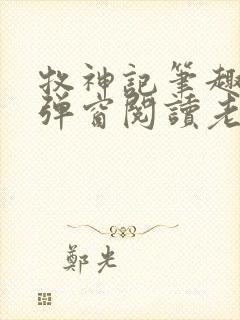 牧神記筆趣
彈窗閱讀老
鄭光